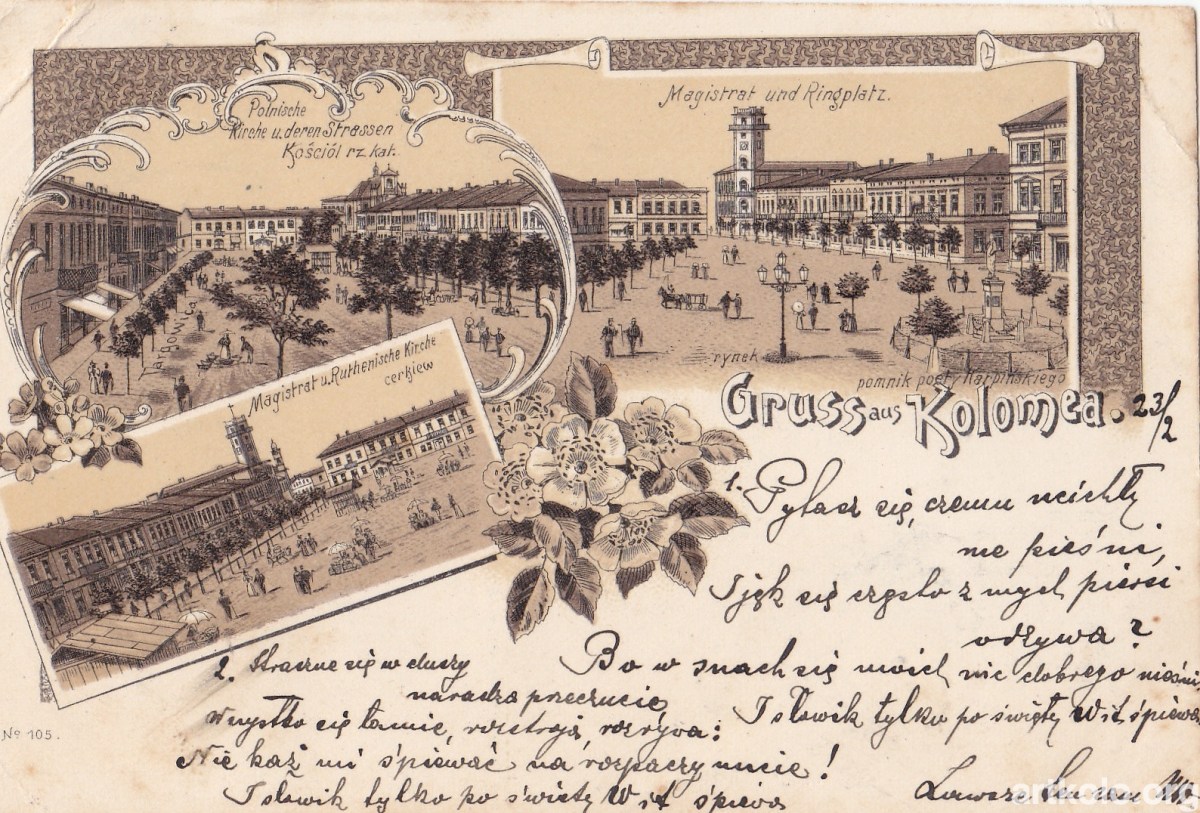 Polnische
Kirche u. deren Strassen
Kościół rz kat.
Magistrat und Ringplatz.
Targowica
rynek
pomnik poety Karpińskiego
Magistrat u. Ruthenische Kirche
cerkiew
Gruss aus Kolomea.
23/2
1. Pytasz się, czemu ucichły
me pieśni,
I jęk się często z mych piersi
odzywa?
Bo w snach się moich nic dobrego nie śni
I słowik tylko po święty Wit śpiewa
2. Straszne się w duszy
naradza przeczucie
Wszystko się łamie, rozstraja, rozrywa:
Nie każ mi śpiewać na rozpaczy nucie!
I słowik tylko po święty Wit śpiewa
Zawsze
No 105.
artkolo.org